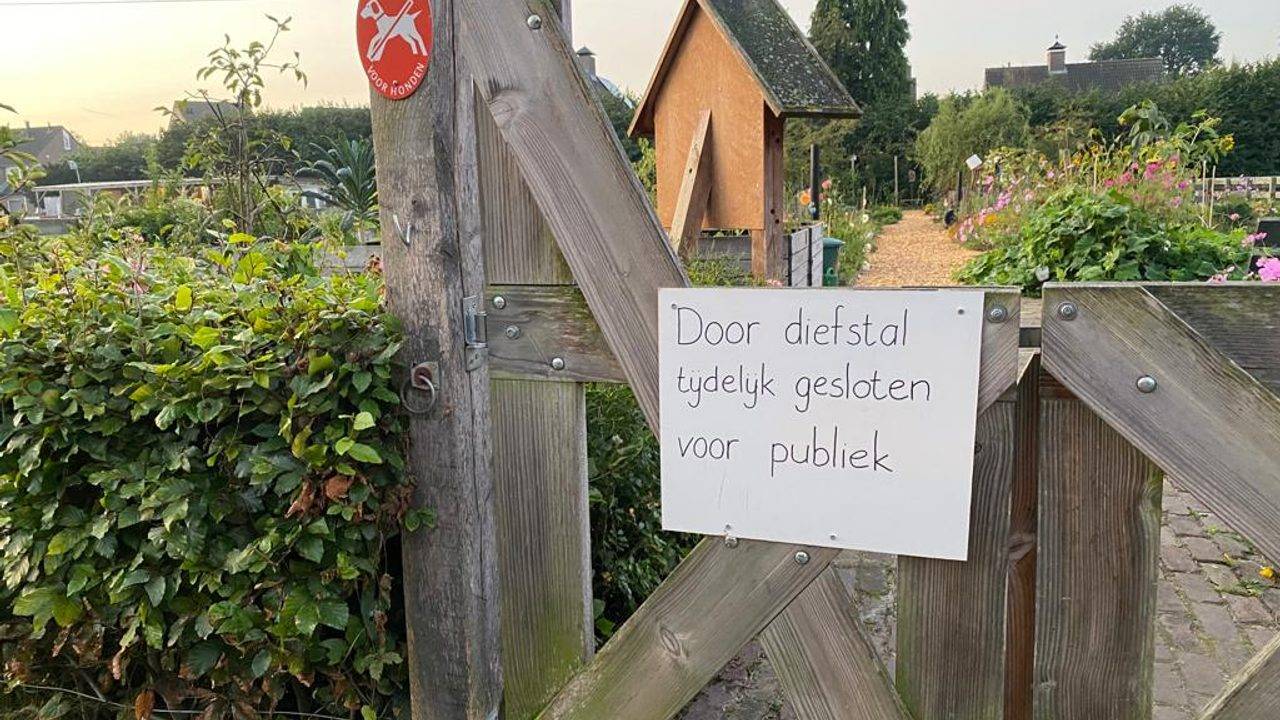 VOOR HONDEN
Door diefstal
tijdelijk gesloten
voor publiek